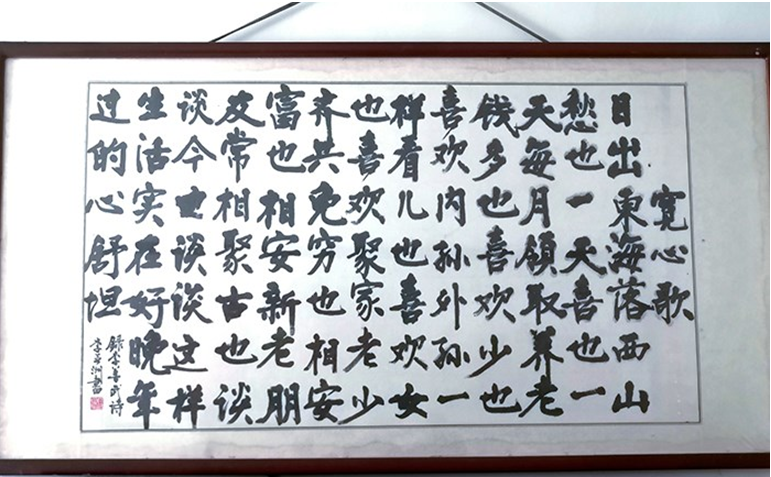 寬心歌
日出東海落西山
愁也一天喜也一
天每月領取养老
钱多也喜欢少也
喜欢内孙外孙一
样看儿也喜欢女
也喜欢聚家老少
齐共免穷也相安
富也相安新老朋
友常相聚古也谈
谈今也谈谈这样
生活实在好晚年
过的心舒坦